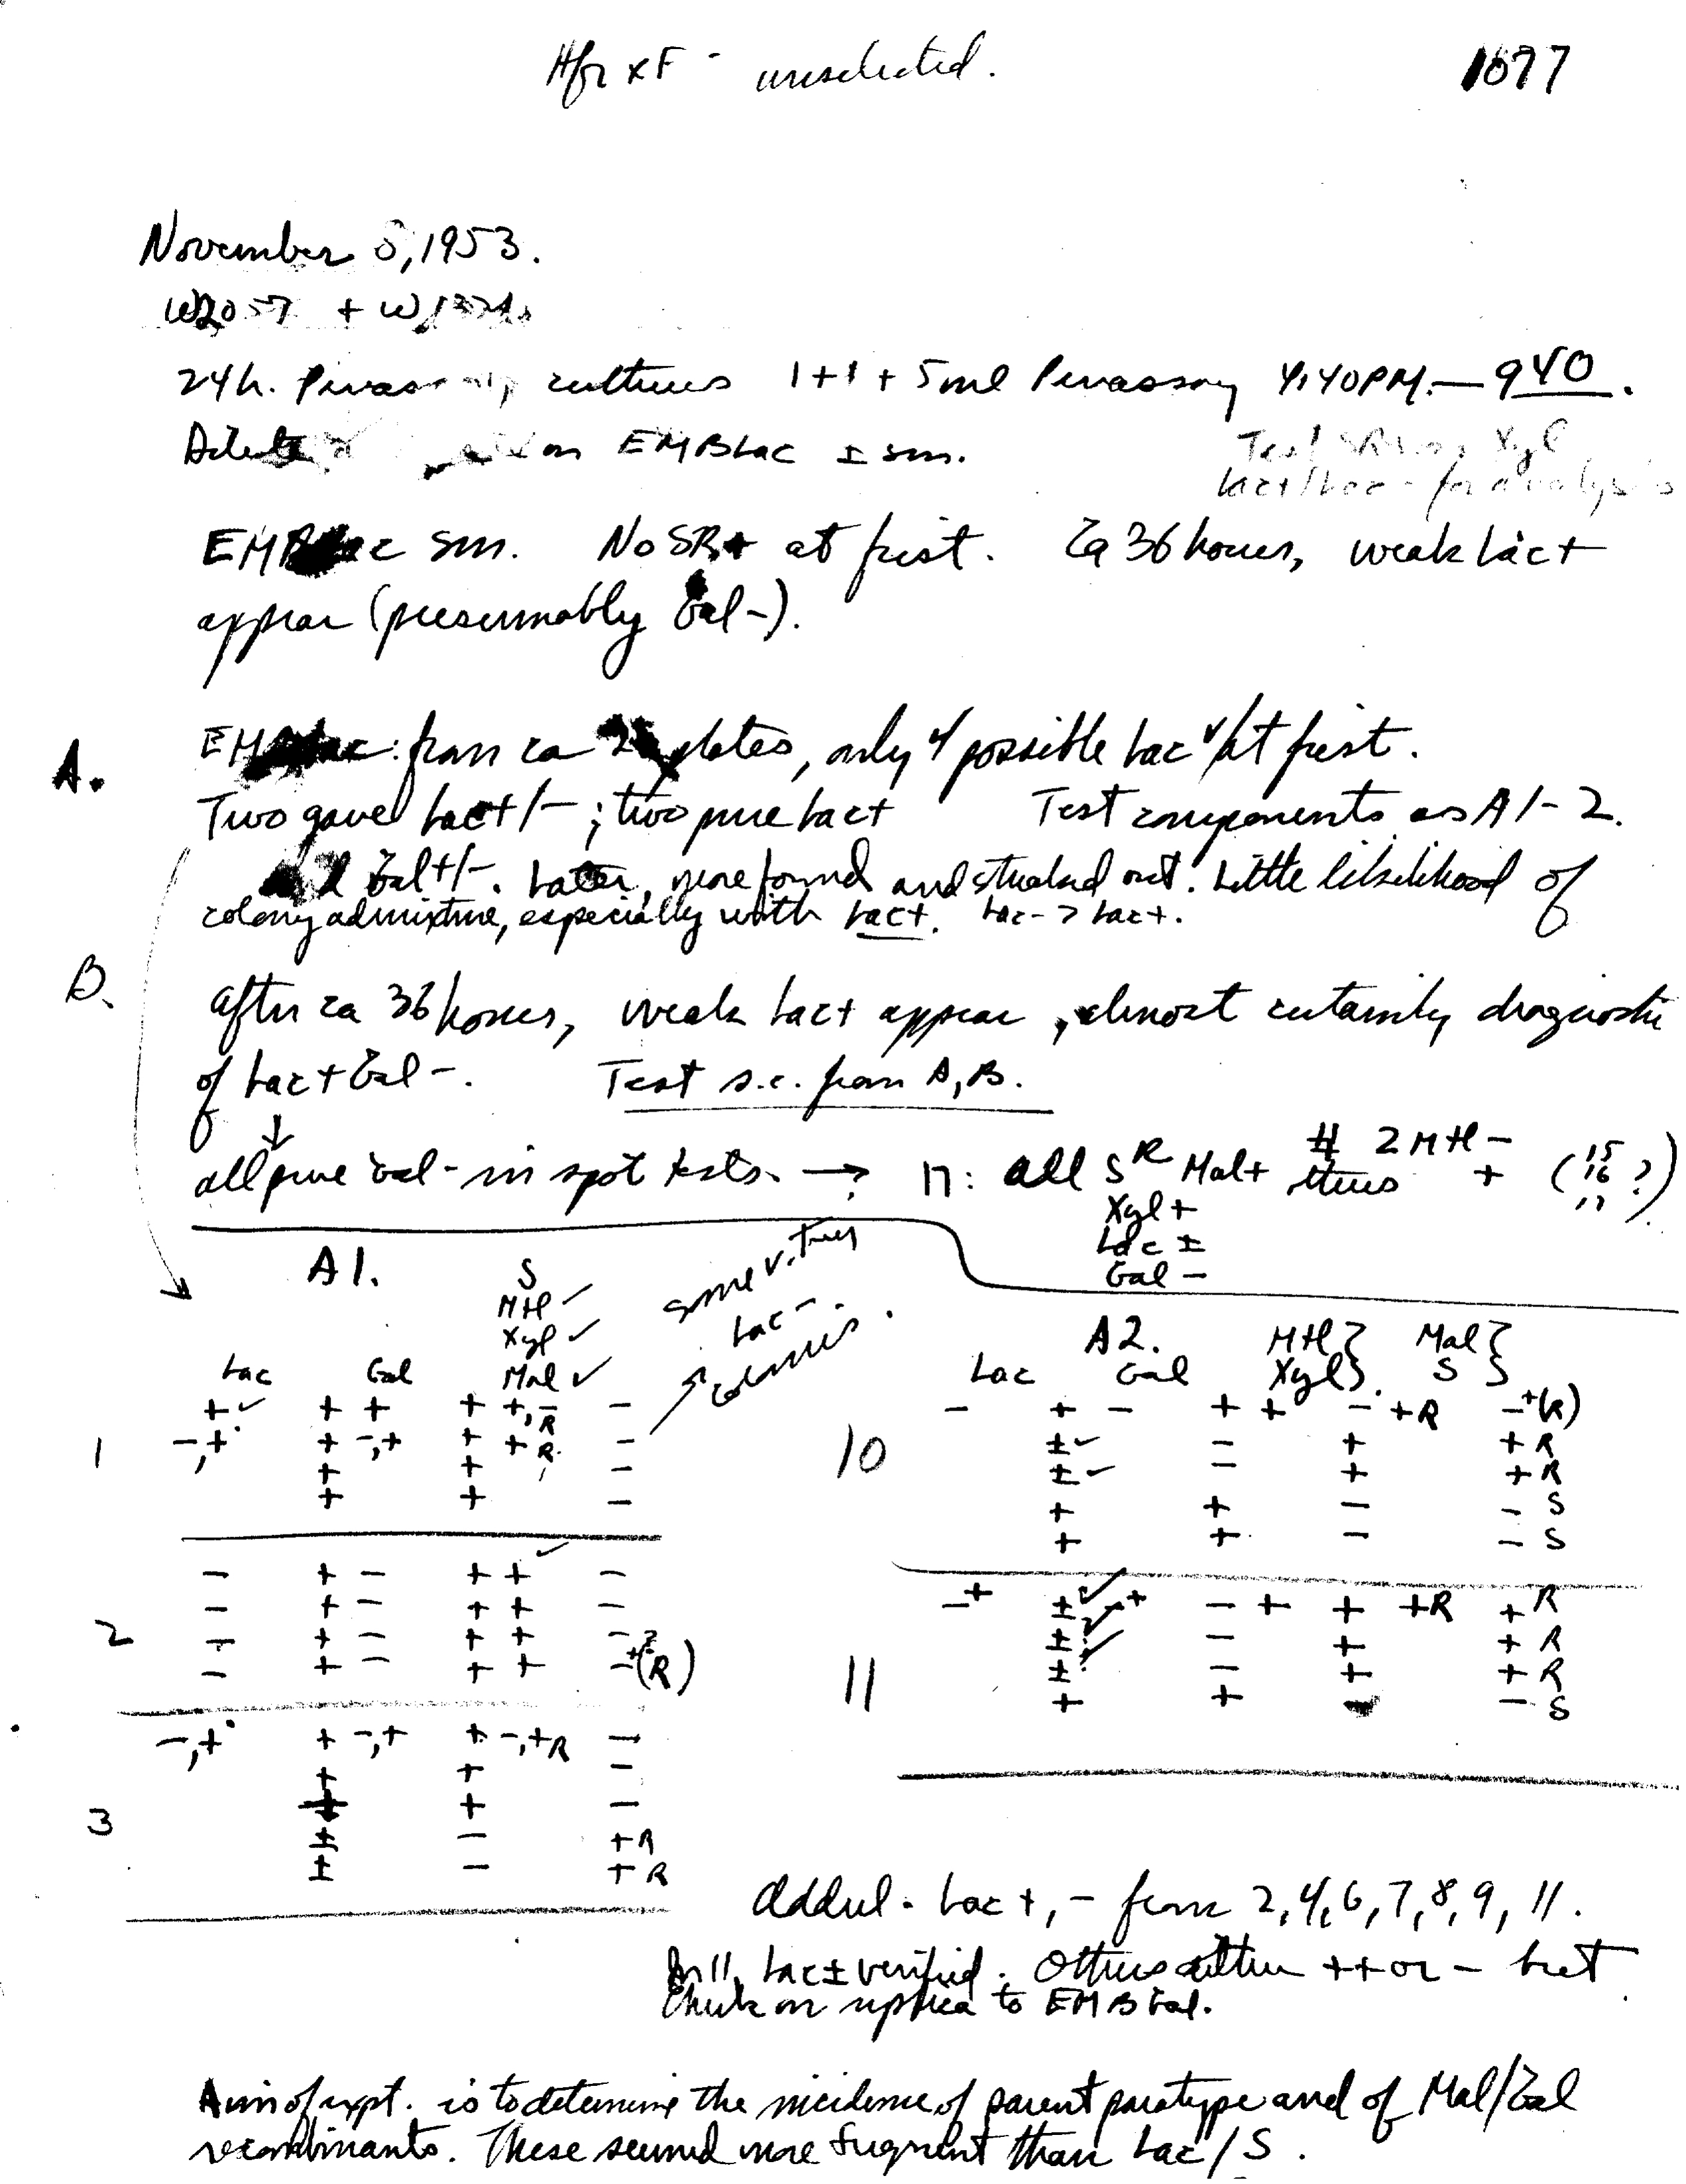 Hfr x F - unselected.
1077
November 8, 1953.
W2057 + W
24h. Penassay cultures 1+1+5ml Penassay 4:40PM.—940.
Dilute on EMBLac ± sm.
Test Xyl
Lac+/Lac- for analysis
EMBLac sm. No SR+ at first. Ca 36 hours, weak Lac+
appear (presumably Gal-).
A.
EMBLac: from ca plates, only 4 possible Lac v at first.
Two gave Lac+/-; two pure Lac+ Test components as A1-2.
Gal+/-. Later, more found and streaked out. Little likelihood of
colony admixture, especially with Lac+. Lac- > Lac+.
B.
After ca 36 hours, weak Lac+ appear, almost certainly diagnostic
of Lac+Gal-. Test s.c. from A, B.
↓
all pure Gal- in spot tests. → 17: all S^R Mal+ # 2 Mtl -
others + (15 16 17 ?)
Xyl+
Lac ±
Gal -
A1.
S
Mtl ✓
Xyl ✓
Lac Gal Mal ✓
some v. tiny
Lac-
colonies.
1
+✓ + + + +,- R -
-,+ + -,+ + + R. -
+ + -
+ + -
2
- + - + + ✓ -
- + - + + -
- + - + + - ?
- + - + + -+(R)
3
-,+ + -,+ + -,+R -
+ + -
+ + -
± - +R
± - +R
A2.
Lac Gal Mtl} Xyl} Mal} S}
10
- + - + + - +R -+(R)
±✓ - + +R
±✓ - + +R
+ + - - S
+ + - - S
11
-+ ±✓ -+ - + + +R +R
±✓ - + +R
±✓ - + +R
+ + - S
Addnl. Lac+,- from 2,4,6,7,8,9,11.
In 11, Lac± verified. Others either ++ or - but
check on replica to EMBGal.
Aim of expt. is to determine the incidence of parent paratype and of Mal/Gal
recombinants. These seemed more frequent than Lac/S.